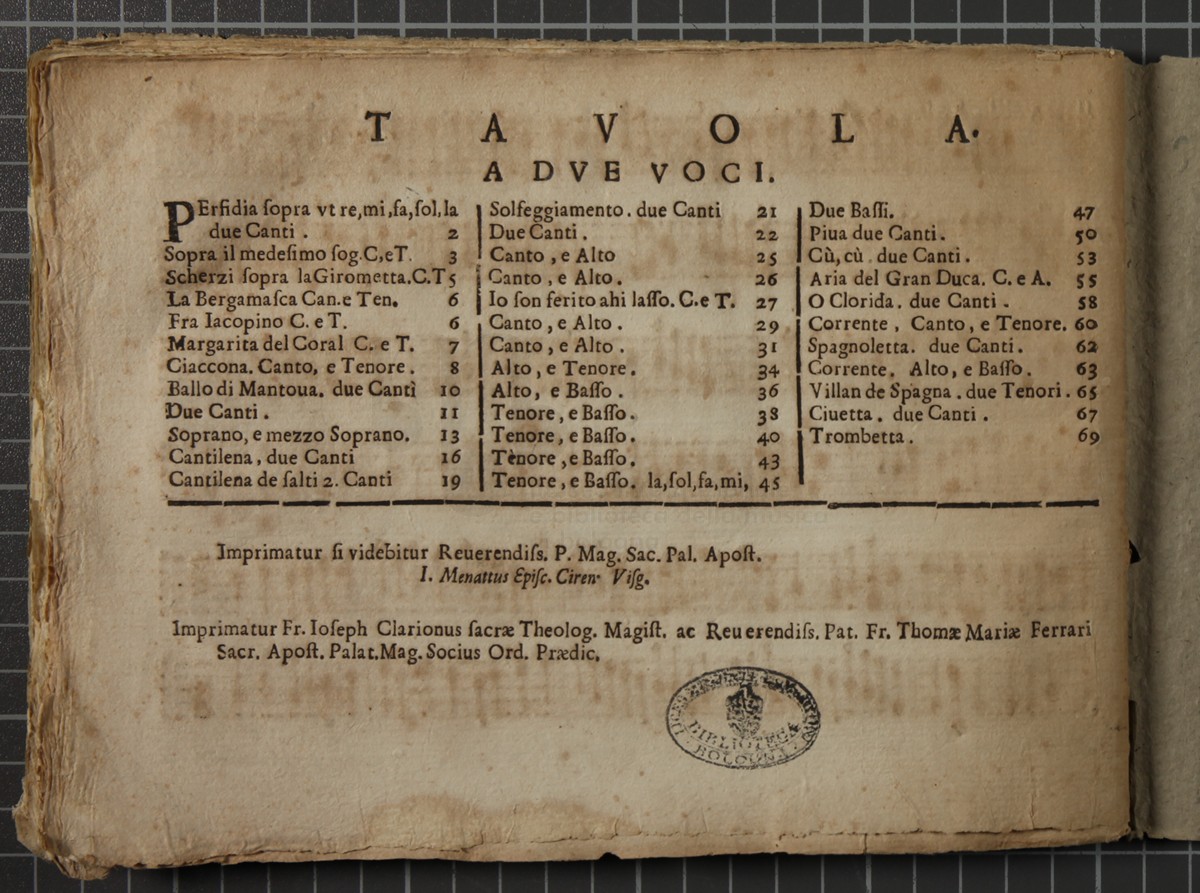 TAVOLA.
A DVE VOCI.
PErfidia ſopra vt re,mi,fa,ſol,la
due Canti . 2
Sopra il medeſimo ſog.C,eT. 3
Scherzi ſopra laGirometta.C.T 5
La Bergamaſca Can.e Ten. 6
Fra Iacopino C. e T. 6
Margarita del Coral C. e T. 7
Ciaccona. Canto, e Tenore . 8
Ballo di Mantoua. due Cantì 10
Due Canti . 11
Soprano, e mezzo Soprano. 13
Cantilena, due Canti 16
Cantilena de ſalti 2. Canti 19
Solfeggiamento. due Canti 21
Due Canti . 22
Canto , e Alto 25
Canto , e Alto. 26
Io ſon ferito ahi laſſo. C.e T. 27
Canto , e Alto . 29
Canto , e Alto . 31
Alto , e Tenore. 34
Alto, e Baſſo . 36
Tenore , e Baſſo. 38
Tenore , e Baſſo. 40
Tènore , e Baſſo. 43
Tenore , e Baſſo. la,ſol,fa,mi, 45
Due Baſſi. 47
Piua due Canti. 50
Cù, cù . due Canti . 53
Aria del Gran Duca. C. e A. 55
O Clorida. due Canti . 58
Corrente , Canto, e Tenore. 60
Spagnoletta. due Canti . 62
Corrente. Alto, e Baſſo . 63
Villan de Spagna . due Tenori . 65
Ciuetta . due Canti . 67
Trombetta . 69
Imprimatur ſi videbitur Reuerendiſs. P. Mag. Sac. Pal. Apoſt.
I. Menattus Epiſc. Ciren· Viſg.
Imprimatur Fr. Ioſeph Clarionus ſacræ Theolog. Magiſt. ac Reuerendiſs. Pat. Fr. Thomæ Mariæ Ferrari
Sacr. Apoſt. Palat.Mag. Socius Ord. Prædic.
BIBLIOTECA
BOLOGNA